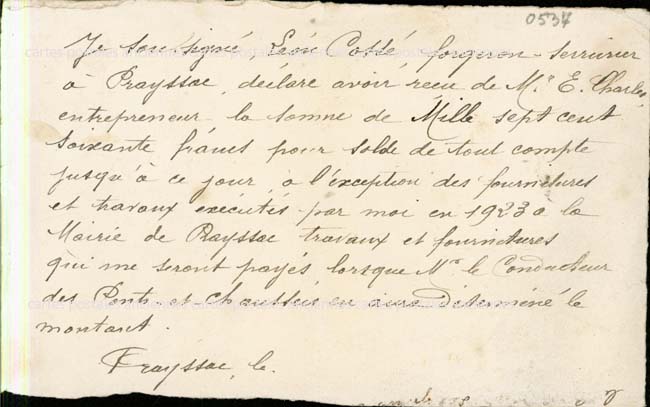 0537
Je soussigné, Léon Costé, forgeron-serrurier
à Prayssac, déclare avoir reçu de Mr E. Charles,
entrepreneur la somme de Mille sept cent
soixante francs pour solde de tout compte
jusqu'à ce jour, à l'exception des fournitures
et travaux exécutés par moi en 1923 a la
Mairie de Prayssac travaux et fournitures
qui me seront payés lorsque Mr le Conducteur
des Ponts et Chaussées en aura déterminé le
montant.
Prayssac, le.